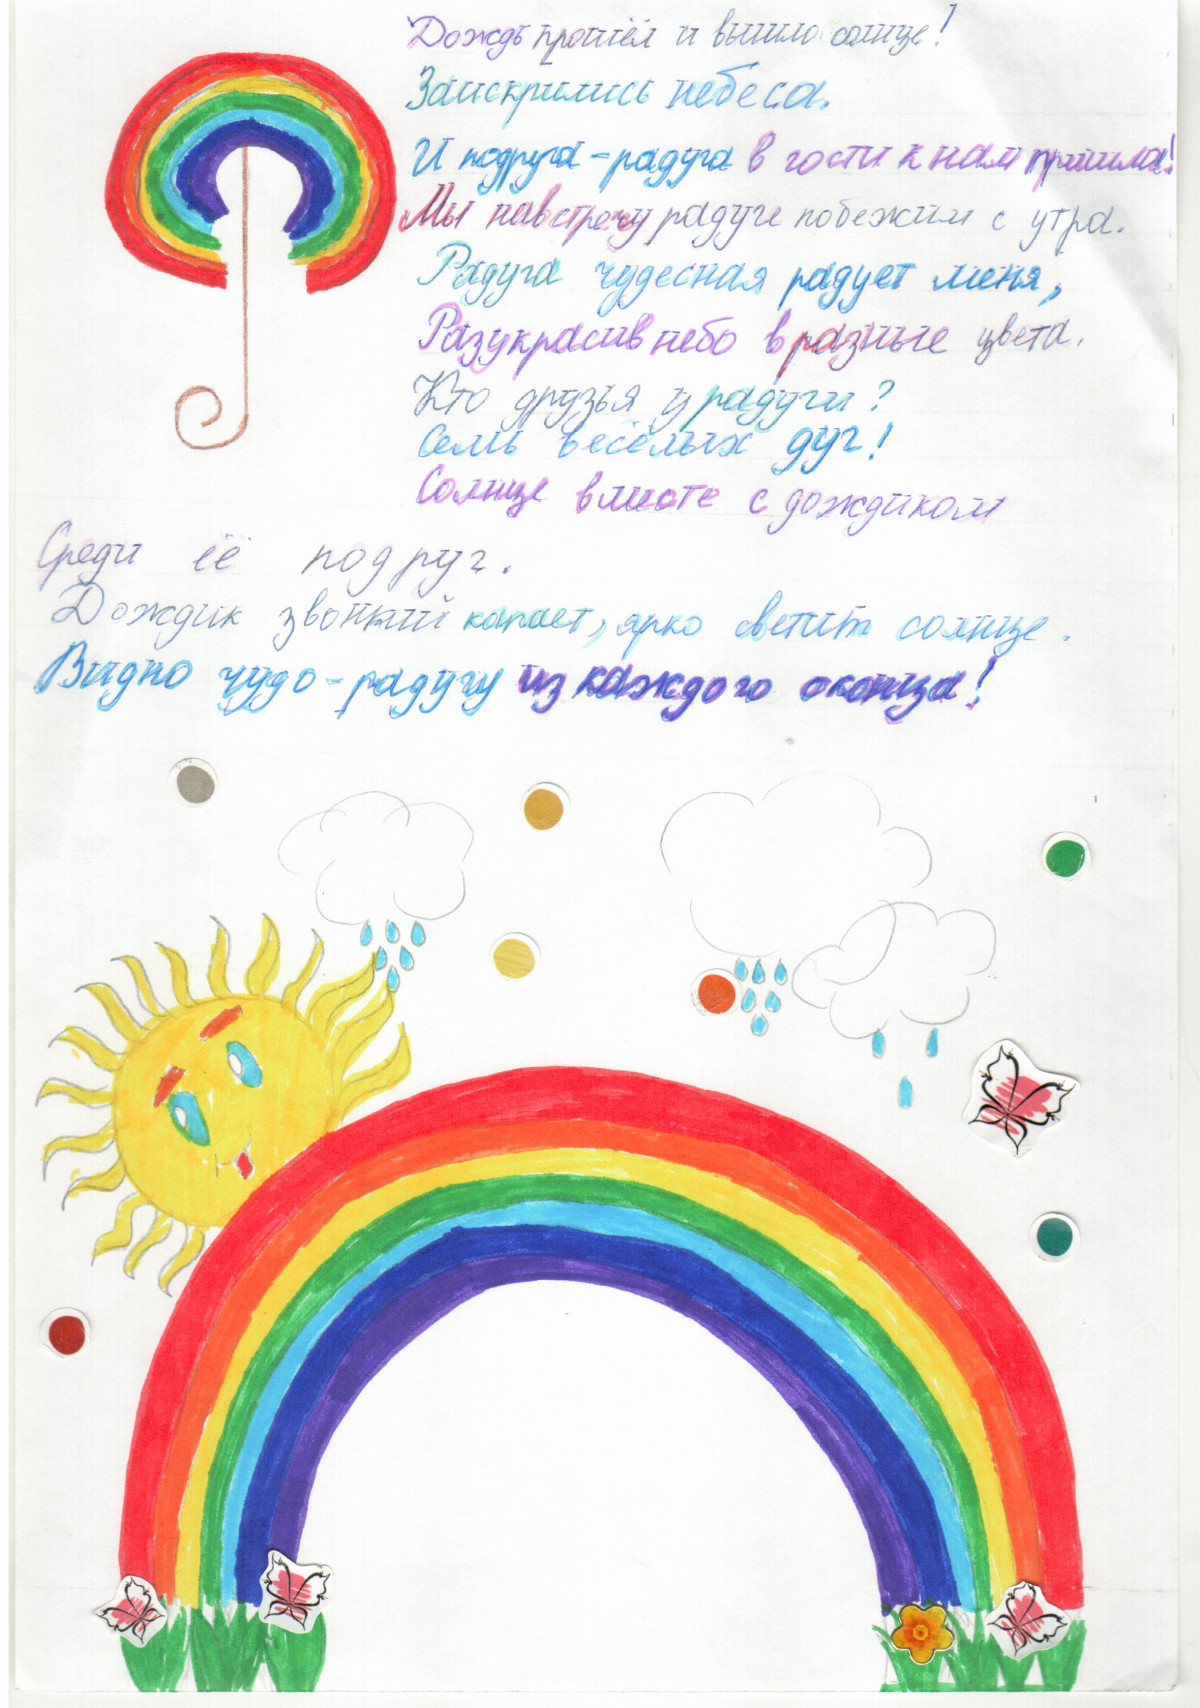 Дождь прошёл и вышло солнце!
Заискрились небеса.
И подруга-радуга в гости к нам пришла!
Мы навстречу радуге побежим с утра.
Радуга чудесная радует меня,
Разукрасив небо в разные цвета.
Кто друзья у радуги?
Семь весёлых дуг!
Солнце вместе с дождиком
Среди её подруг.
Дождик звонкий капает, ярко светит солнце.
Видно чудо-радугу из каждого оконца!